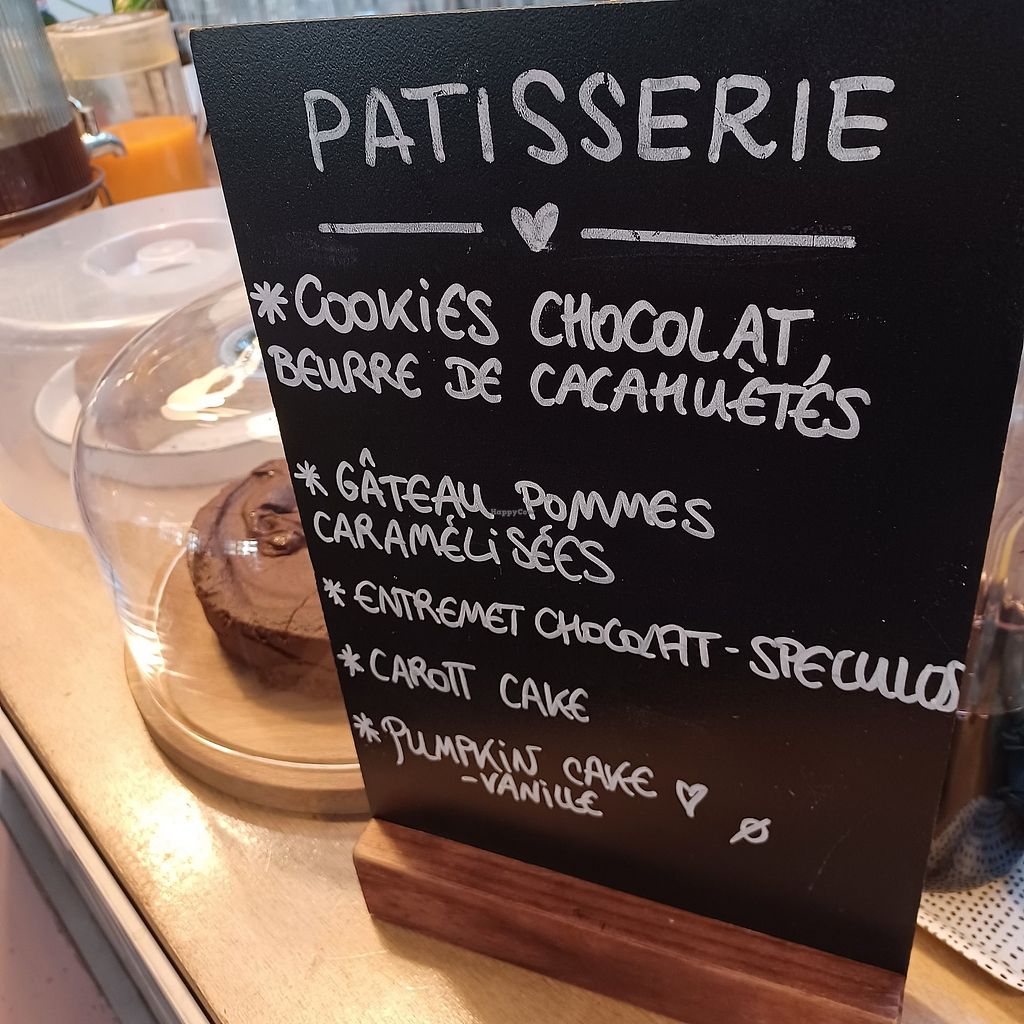 PATISSERIE
*COOKIES CHOCOLAT,
BEURRE DE CACAHUÈTÉS
*GÂTEAU POMMES
CARAMÉLISÉES
*ENTREMET CHOCOLAT-SPECULOS
*CAROTT CAKE
*PUMPKIN CAKE ♡
-VANILLE
Ø
HappyCow